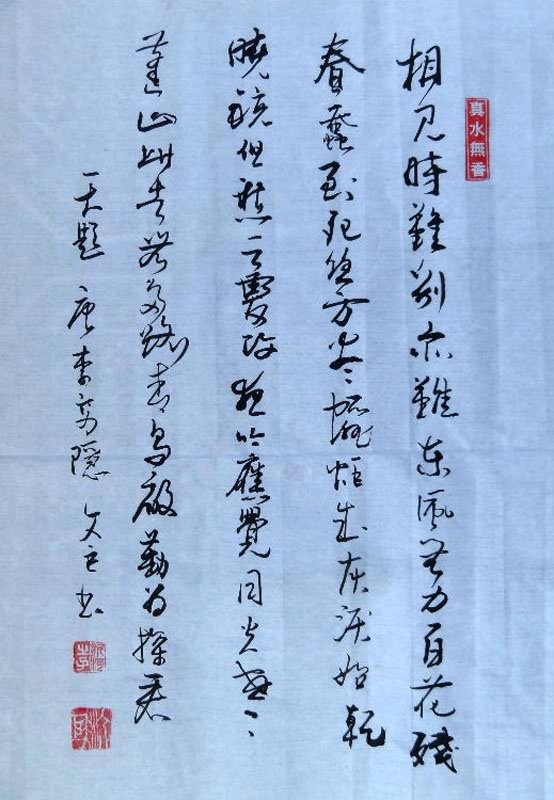 真水無香
相見時難別亦難東風無力百花殘
春蠶到死絲方盡蠟炬成灰淚始乾
曉鏡但愁云鬢改夜吟應覺月光寒
蓬山此去無多路青鳥殷勤為探看
无題 唐李商隱 文 书